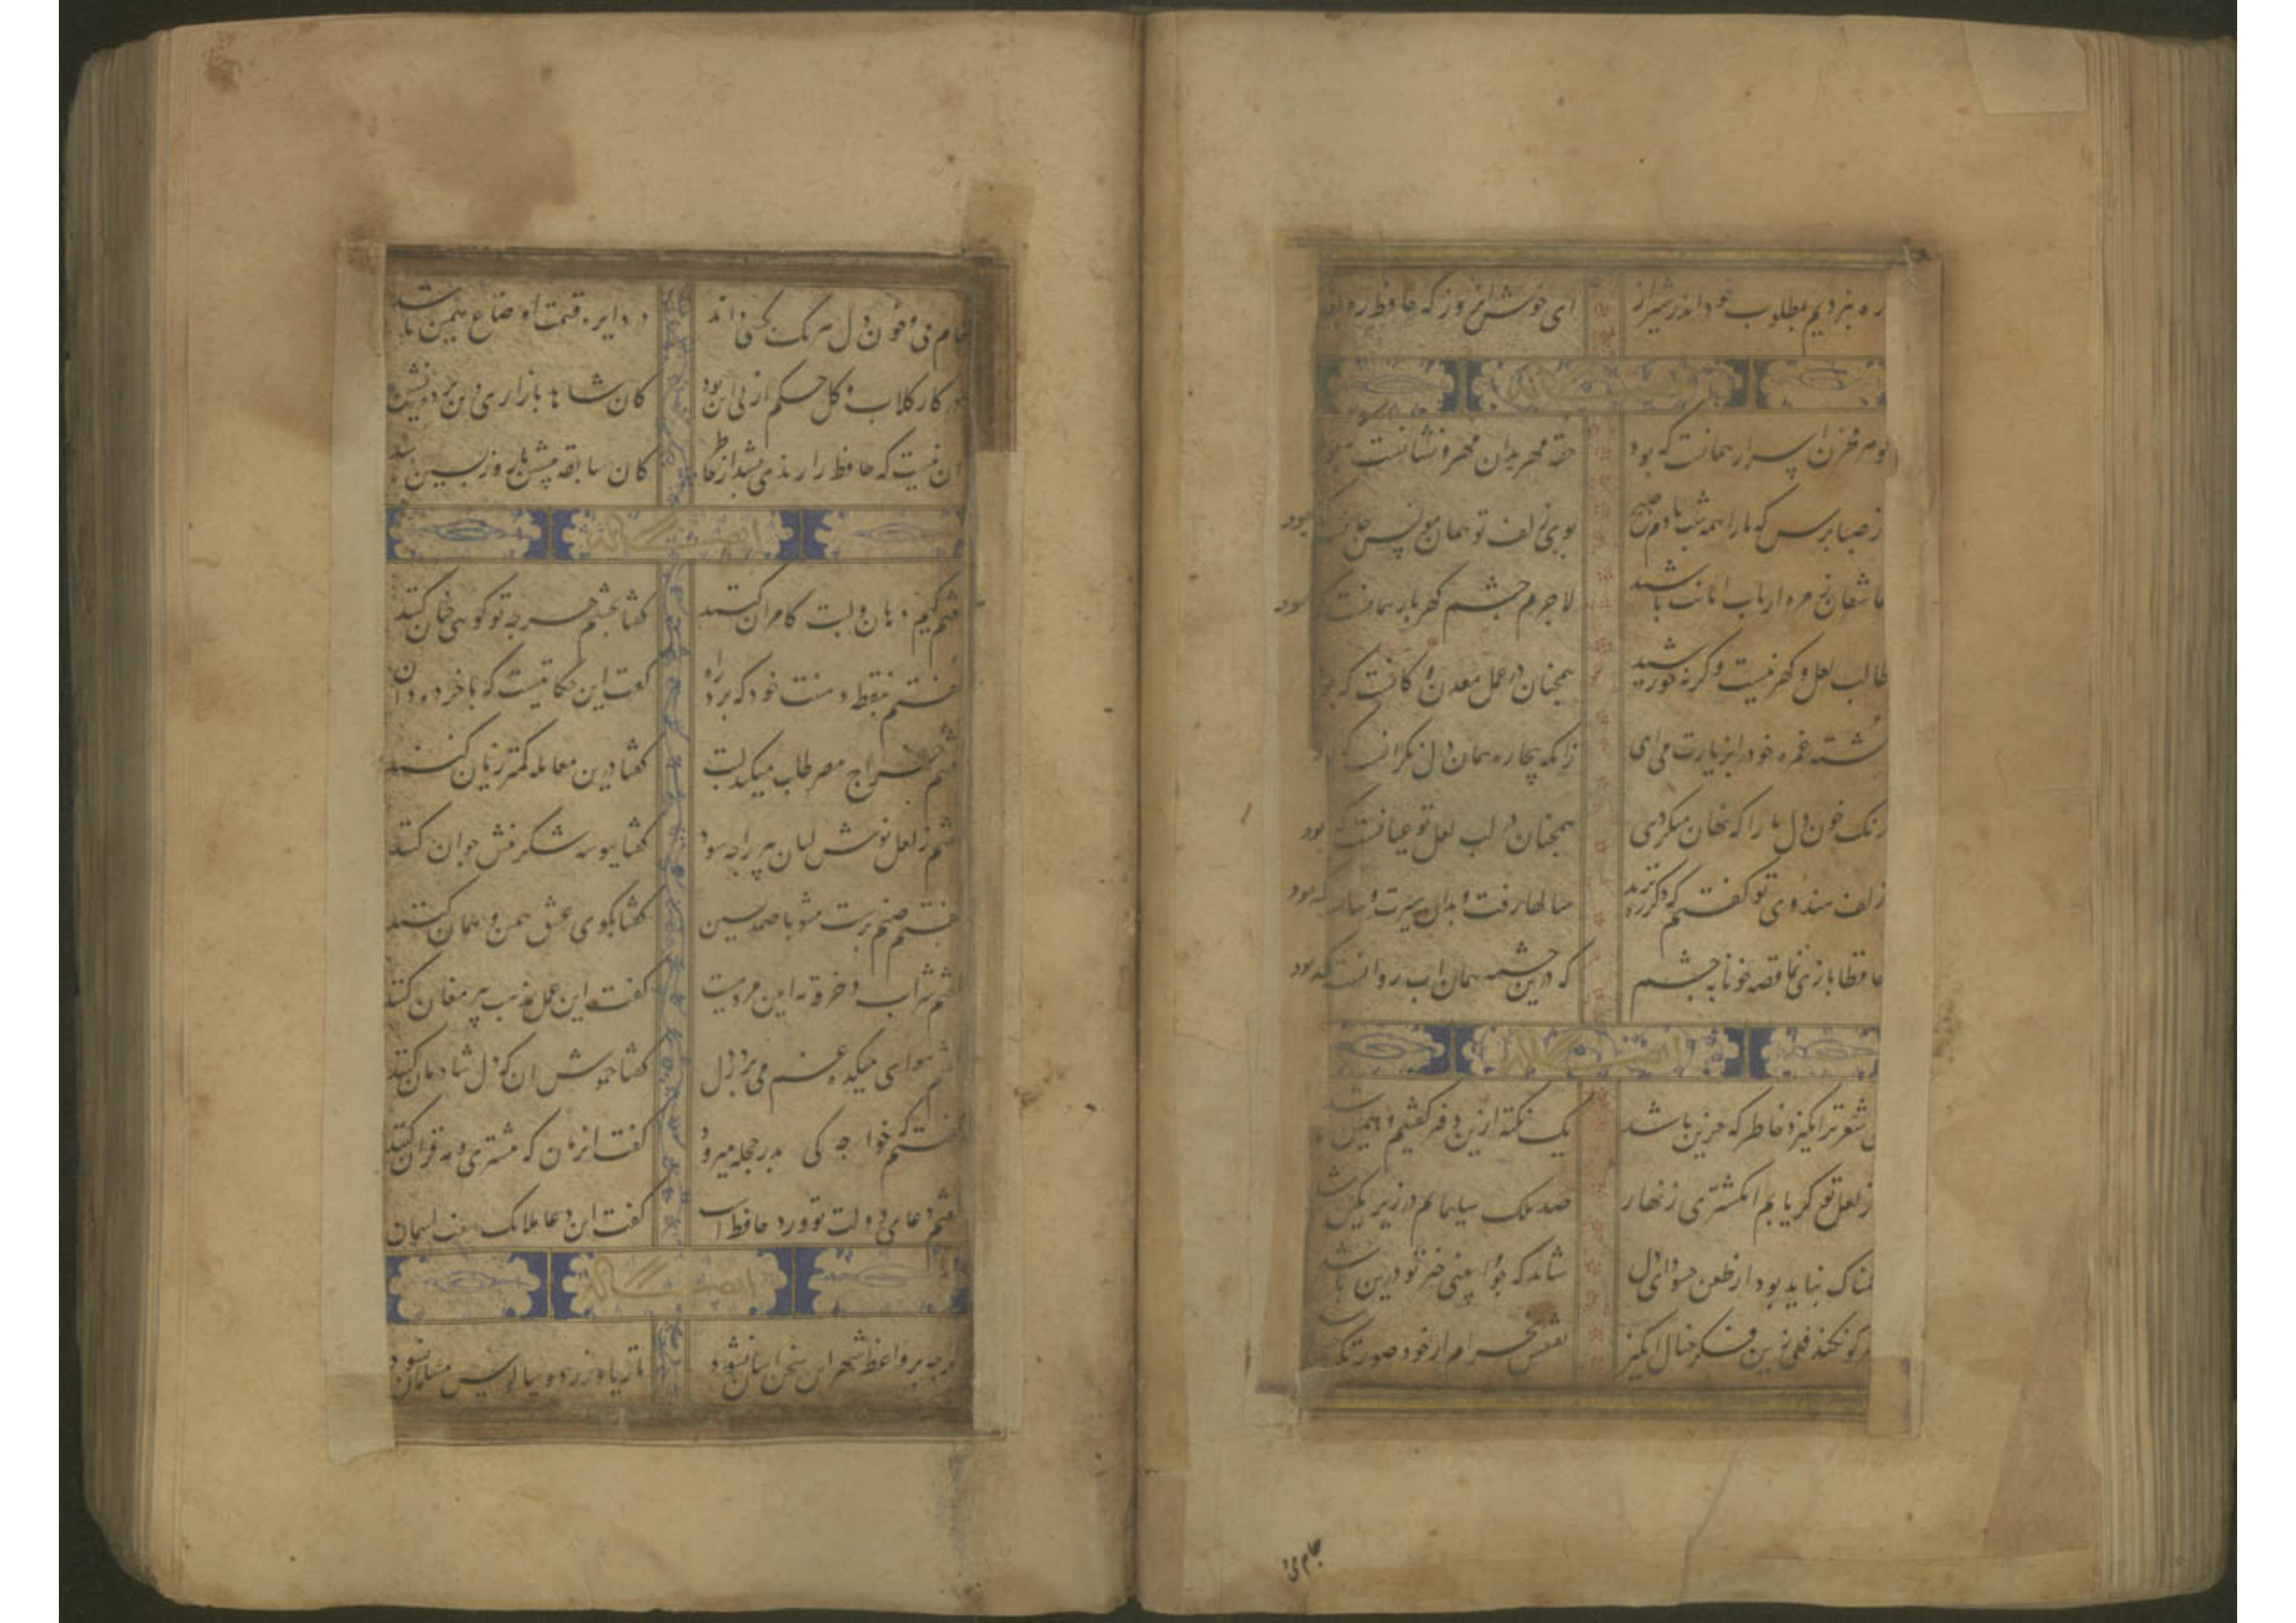 ره نبردیم بمطلوب خود اندر شیراز ای خوش انروز که حافظ ره
ایضا له
کوهر مخزن اسرار همانست که بود حقه مهر بدان مهر و نشانست که بود
از صبا پرس که ما را همه شب تا دم صبح بوی زلف تو همان مونس جانست که بود
عاشقان زمره ارباب امانت باشند لاجرم چشم کهربار همانست که بود
طالب لعل و کهر نیست وکرنه خورشید همچنان در عمل معدن و کانست که بود
کشته غمزه خود را بزیارت می ای زانکه بیچاره همان دل نکرانست که بود
رنک خون دل ما را که نهان میکردی همچنان در لب لعل تو عیانست که بود
زلف هندوی تو کفتم که دکر ره نزند سالها رفت و بدان سیرت و سان که بود
حافظا باز نما قصه خونابه چشم که درین چشمه همان اب روانست که بود
ایضا له
کی شعر تر انکیزد خاطر که حزین باشد یک نکته ازین دفتر کفتیم و همین باشد
از لعل تو کر یابم انکشتری زنهار صد ملک سلیمانم در زیر نکین باشد
غمناک نباید بود از طعن حسود ای دل شاید که چو وابینی خیر تو درین باشد
هر کو نکند فهمی زین کلک خیال انکیز نقشش بحرام ار خود صورتکر
جام می و
جام می و خون دل هر یک بکسی دادند در دایره قسمت اوضاع چنین باشد
در کار کلاب و کل حکم ازلی این بود کان شاهد بازاری وین پرده نشین باشد
ان نیست که حافظ را رندی بشد از خاطر کان سابقه پیشین تا روز پسین باشد
ایضا له
کفتم کیم دهان و لبت کامران کنند کفتا بچشم هرچه تو کوئی چنان کنند
کفتم بنقطه دهنت خود که برد راه کفت این حکایتیست که با خرده دان
کفتم خراج مصر طلب میکند لبت کفتا درین معامله کمتر زیان کنند
کفتم ز لعل نوش لبان پیر را چه سود کفتا ببوسه شکرینش جوان کنند
کفتم صنم پرست مشو با صمد نشین کفتا بکوی عشق همین و همان کنند
کفتم شراب و خرقه نه ایین مردمست کفت این عمل بمذهب پیر مغان کنند
کفتم هوای میکده غم می برد ز دل کفتا خموش ان که دل شادمان کنند
کفتم که خواجه کی بدر حجله میرود کفت انزمان که مشتری و مه قران کنند
کفتم دعای دولت تو ورد حافظ است کفت این دعا ملائک هفت اسمان
ایضا له
کرچه بر واعظ شهر این سخن اسان نشود تا ریا ورزد و سالوس مسلمان نشود